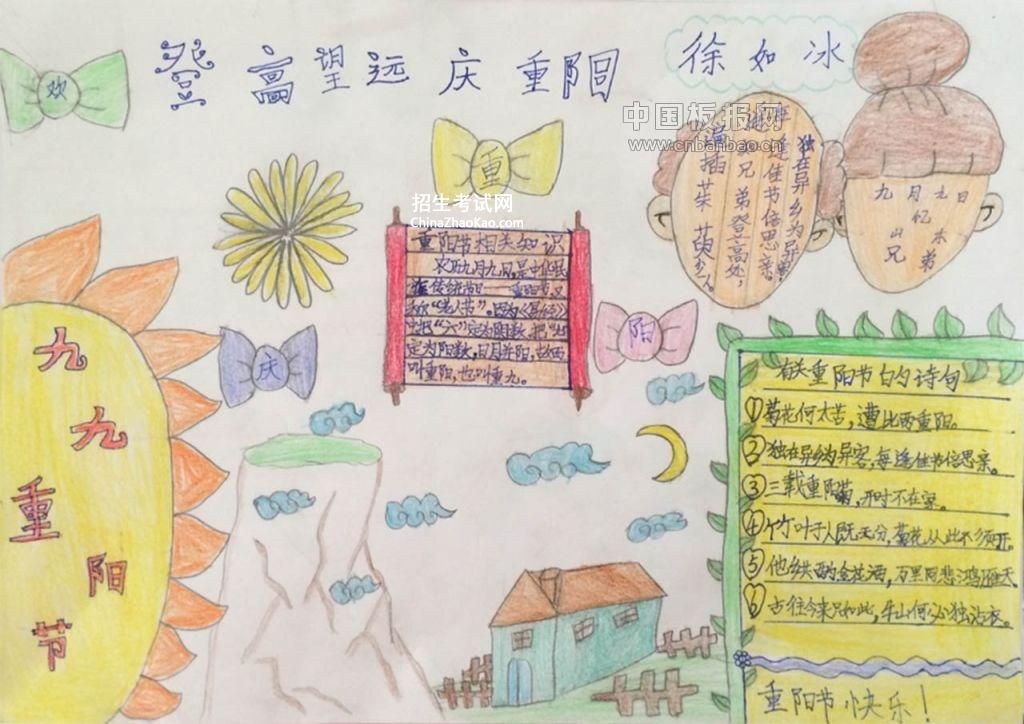 登高望远庆重阳
徐如冰
欢
重
庆
阳
中国板报网
www.cnbanbao.cn
招生考试网
ChinaZhaoKao.com
独在异乡为异客，
每逢佳节倍思亲。
兄弟登高处，
遍插茱萸少一人
九月九日
忆
山东
兄弟
重阳节相关知识
农历九月九日，是中华民
族传统节日——重阳节又
称“老人节”。因为《易经》
中把“六”定为阴数，把“九”
定为阳数，日月并阳，
叫重阳，也叫重九。
九
九
重
阳
节
有关重阳节的诗句
①菊花何太苦，遭此两重阳。
②独在异乡为异客，每逢佳节倍思亲。
③三载重阳菊，开时不在家。
④竹叶于人既无分，菊花从此不须开。
⑤他乡共酌金花酒，万里同悲鸿雁天
⑥古往今来只如此，牛山何必独沾衣。
重阳节快乐！